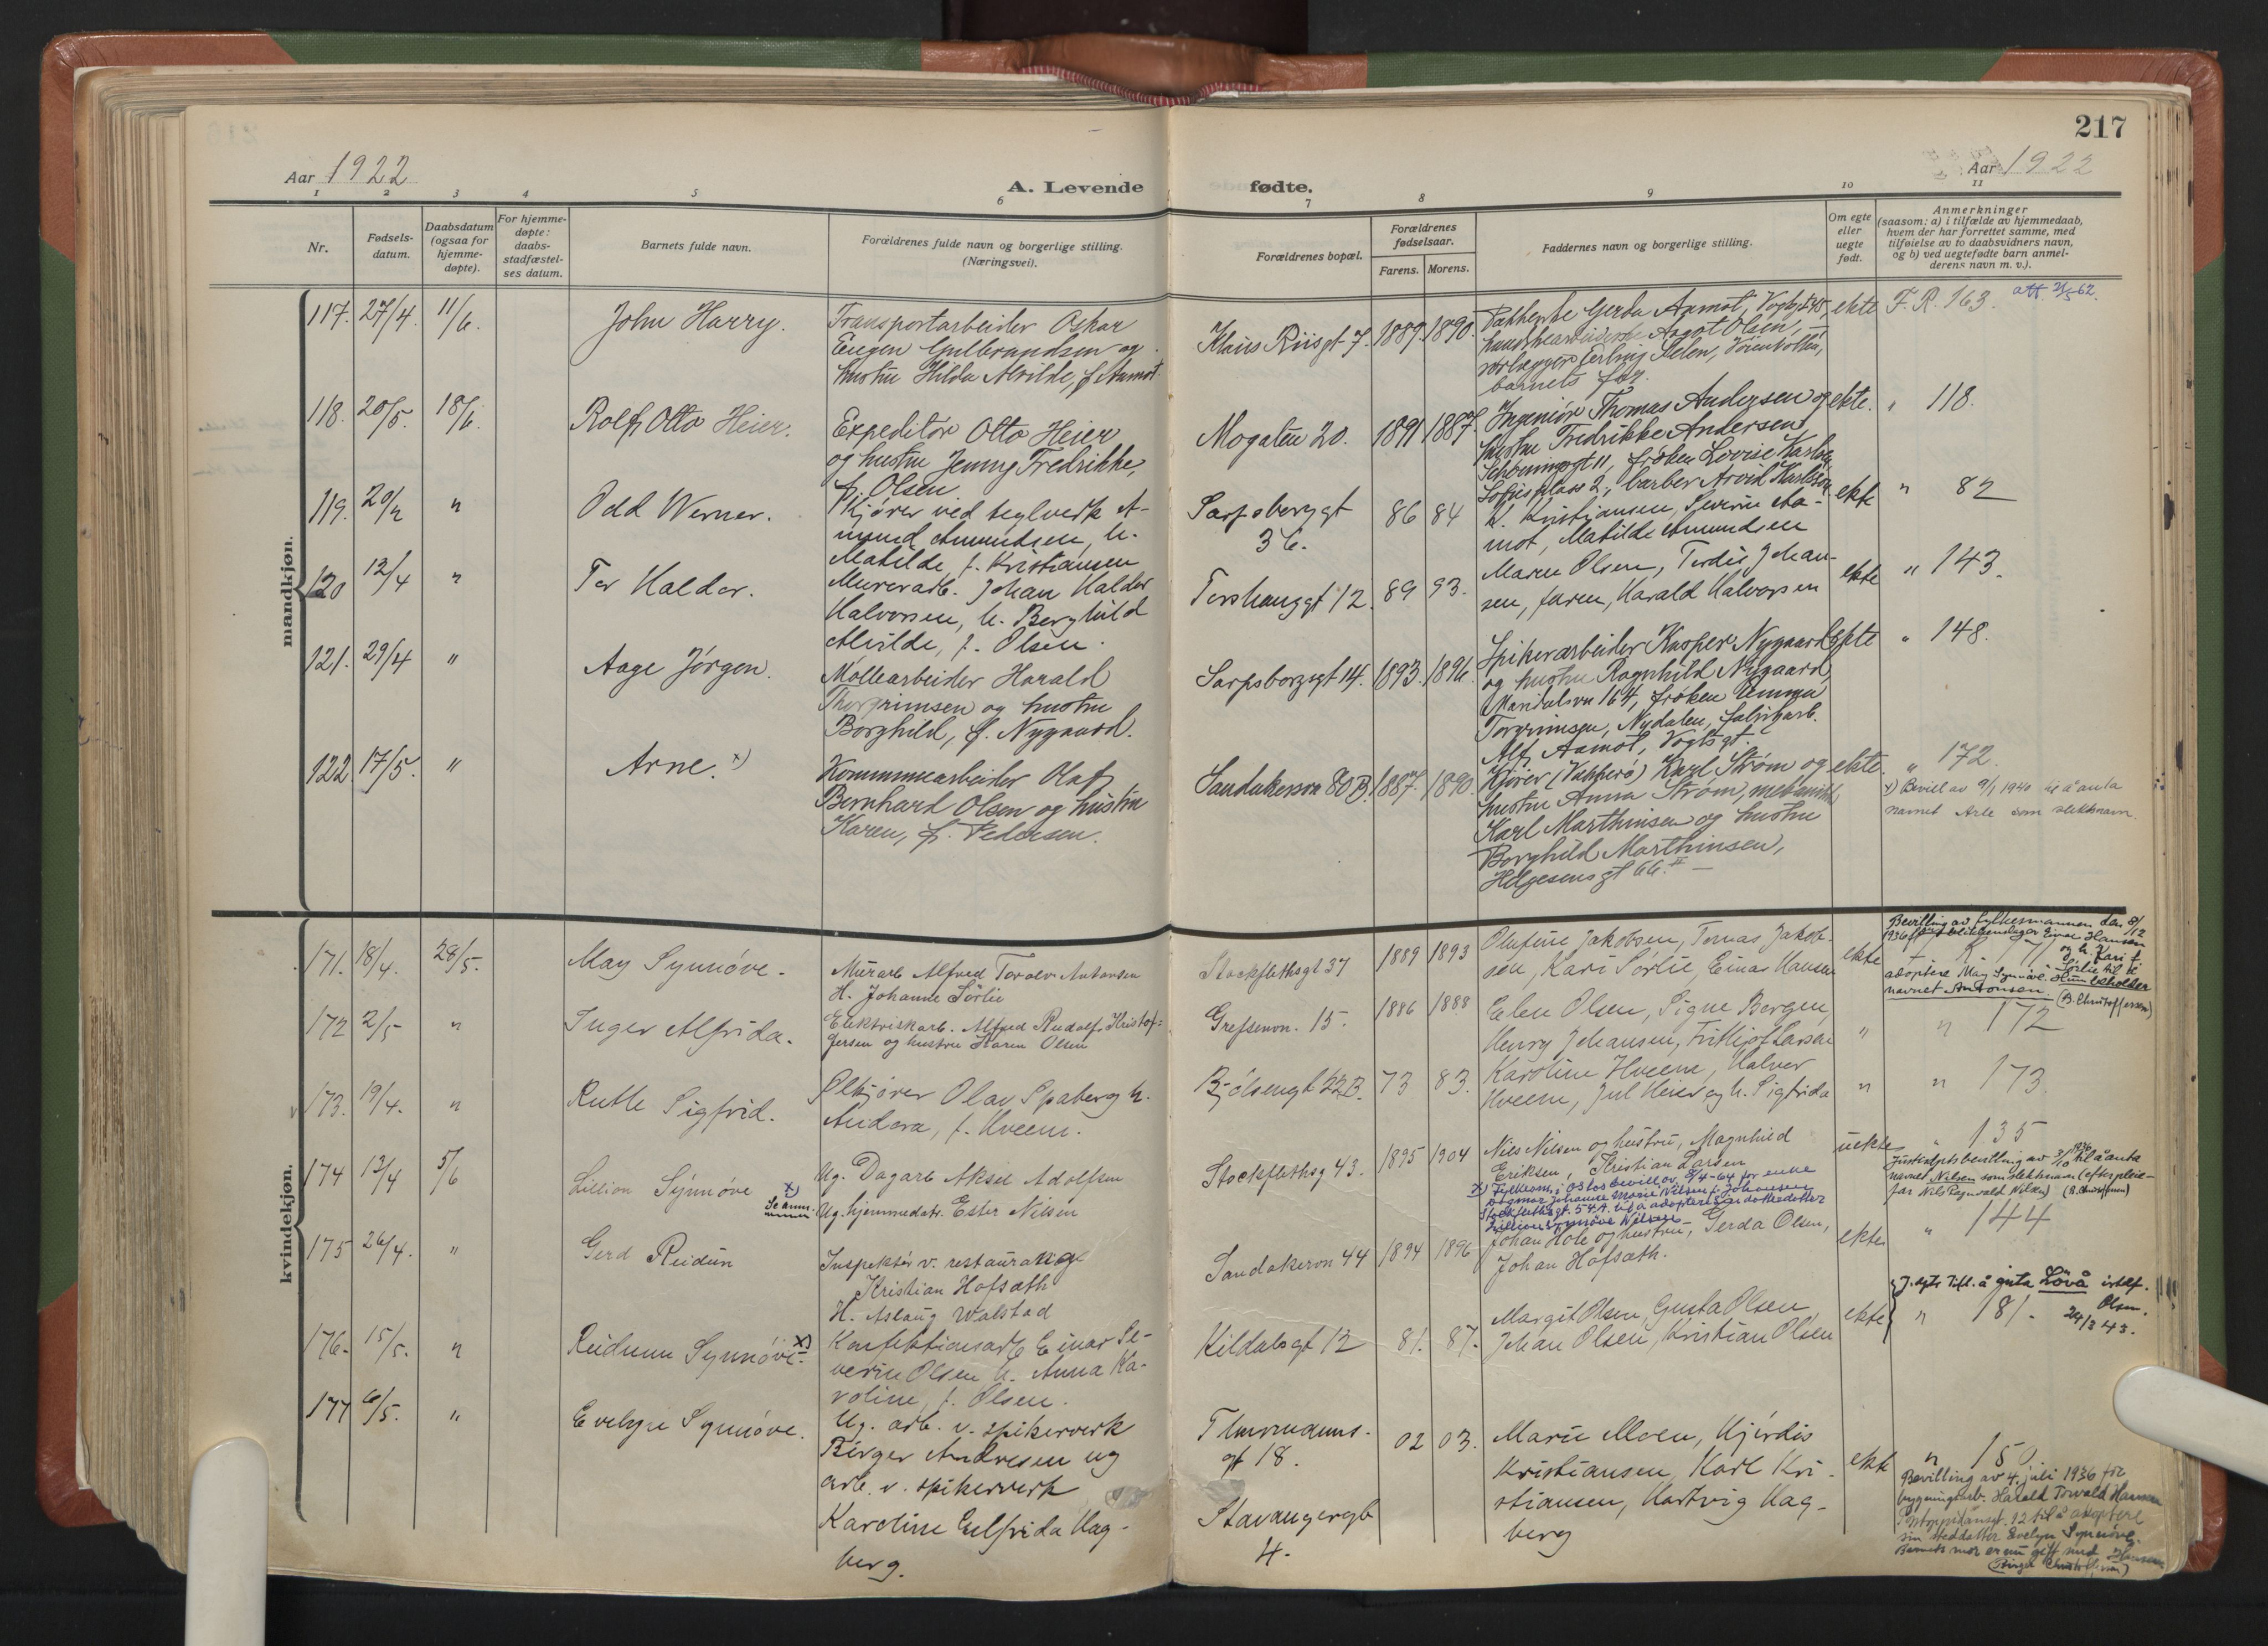 217
Aar 1922
A. Levende fødte.
Aar 1922
1 2 3 4 5 6 7 8 9 10 11
Nr.
Fødsels-
datum.
Daabsdatum
(ogsaa for
hjemme-
døpte).
For hjemme-
døpte:
daabs-
stadfæstel-
ses datum.
Barnets fulde navn.
Forældrenes fulde navn og borgerlige stilling.
(Næringsvei).
Forældrenes bopæl.
Forældrenes
fødselsaar.
Farens. Morens.
Faddernes navn og borgerlige stilling.
Om egte
eller
uegte
født.
Anmerkninger
(saasom: a) i tilfælde av hjemmedaab,
hvem der har forrettet samme, med
tilføielse av to daabsvidners navn,
og b) ved uegtefødte barn anmel-
derens navn m. v.).
mandkjøn.
117. 27/4. 11/6. John Harry.
Transportarbeider Oskar
Eugen Gulbrandsen og
hustru Hilda Alvilde, f. Aamot
Klaus Riisgt 7. 1889. 1890.
Gerda Aamot, Vogtsgt 45,
Aagot Olsen,
Erling
barnets far.
ekte F. R. 163.
118. 20/5. 18/6. Rolf Otto Heier.
Expeditør Otto Heier
og hustru Jenny Fredrikke,
f. Olsen
Mogaten 20. 1891 1887.
Ingeniør Thomas Andersen og
hustru Fredrikke Andersen,
frøken Lovise
barber Arvid
ekte. " 118.
119. 20/2 " Odd Werner.
Kjører ved teglverk A-
mund Amundsen, h.
Matilde, f. Kristiansen
Sarpsborggt
36.
86 84
Kristiansen, Severin Aa-
mot, Matilde Amundsen
ekte " 82
120 12/4 " Tor Halder.
Murerarb. Johan Halder
Halvorsen, h. Borghild
Alvilde, f. Olsen.
Torshauggt 12. 89 93.
Maren Olsen, Johan-
sen, faren, Harald Halvorsen
ekte " 143.
121. 29/4 " Aage Jørgen.
Møllearbeider Harald
Thorgrimsen og hustru
Borghild, f. Nygaard.
Sarpsborggt 14. 1893. 1896.
Spikerarbeider Kasper Nygaard
og hustru Ragnhild Nygaard,
164, frøken Emma
Torgrimsen, Nydalen, fabrikarb.
Alf Aamot, Vogtsgt.
ekte " 148.
122 17/5. " Arne. x)
Kommunearbeider Olaf
Bernhard Olsen og hustru
Karen, f. Pedersen.
Sandakerveien 80 B. 1887. 1890.
Kjører (Vækkerø) Karl Strøm og
hustru Anna Strøm,
Karl Marthinsen og hustru
Borghild Marthinsen,
Helgesens gt 66.
ekte. " 172.
x) Bevill av 9/1 1940 til å anta
navnet Arle som slektsnavn.
kvindekjøn.
171. 18/4. 28/5. May Synnøve.
Murarb Alfred Antonsen
H. Johanne Sørlie
Stockflethsgt 37 1889 1893
Olufine Jakobsen, Tomas Jakob-
sen, Kari Sørlie, Einar Hansen
ekte
Bevilling av fylkesmannen den 8/12
1936 Einar Hansen
og h. Kari f.
Sørlie til å
adoptere May Synnøve. Hun beholder
navnet Antonsen. (B. Christoffersen)
172 2/5 " Inger Alfrida.
Elektriskarb. Alfred Rudolf Kristof-
fersen og hustru Karen Olsen
Grefsenvn. 15. 1886 1888
Elen Olsen, Signe Bergen,
Henry Johansen, Fritjof Larsen
" " 172
173. 19/4. " Ruth Sigfrid.
Ølkjører Olav Spaberg h.
Andora, f. Hveem.
Bjølsengt 22B. 73 83.
Karoline Hveem, Halvor
Hveem, Jul Heier og h. Sigfrida
" " 173.
174 13/4 5/6 Lillian Synnøve x)
Ug. Dagarb Aksel Adolfsen
Ug. hjemmedatr. Ester Nilsen
Stockflethsg 43. 1895 1904
Niels Nilsen og hustru, Magnhild
Eriksen, Kristian Larsen
x) Fylkesm. i Oslos bevill. av 8/4-64 for enke
Dagmar Johanne Marie Nilsen f. Johansen
Stockflethsgt. 54A. til å adoptere sin datterdatter
Lillian Synnøve Nilsen
uekte " 135
navnet Nilsen som slektsnavn
175 26/4. " Gerd Reidun
Inspektør v. restaurang
Kristian Hofsæth
H. Aslaug Walstad
Sandakervn 44 1894 1896
Johan Hole og hustru, Gerda Olsen,
Johan Hofsæth.
ekte " 144
176. 15/5. " Reidunn Synnøve. x)
Konfektionsarb Einar Se-
verin Olsen h. Anna Ka-
roline, f. Olsen.
Kildalsgt 12 81. 87.
Margit Olsen, Gusta Olsen,
Johan Olsen, Kristian Olsen
ekte " 181.
Løvå istdf.
Olsen.
24/2 43.
177 6/5. " Evelyn Synnøve.
Ug. arb. v. spikerverk
Birger Andresen og
arb. v. spikerverk
Karoline Hag-
berg.
gt 18.
Stavangergt
4.
02 03.
Marie Moen, Hjørdis
Kristiansen, Karl Kri-
stiansen, Hartvig Hag-
berg
" 150
Bevilling av 4. juli 1936 for
bygningsarb. Harald Torvald Hansen
12 til å adoptere
sin steddatter Evelyn Synnøve.
Barnets mor er nu gift med Hansen